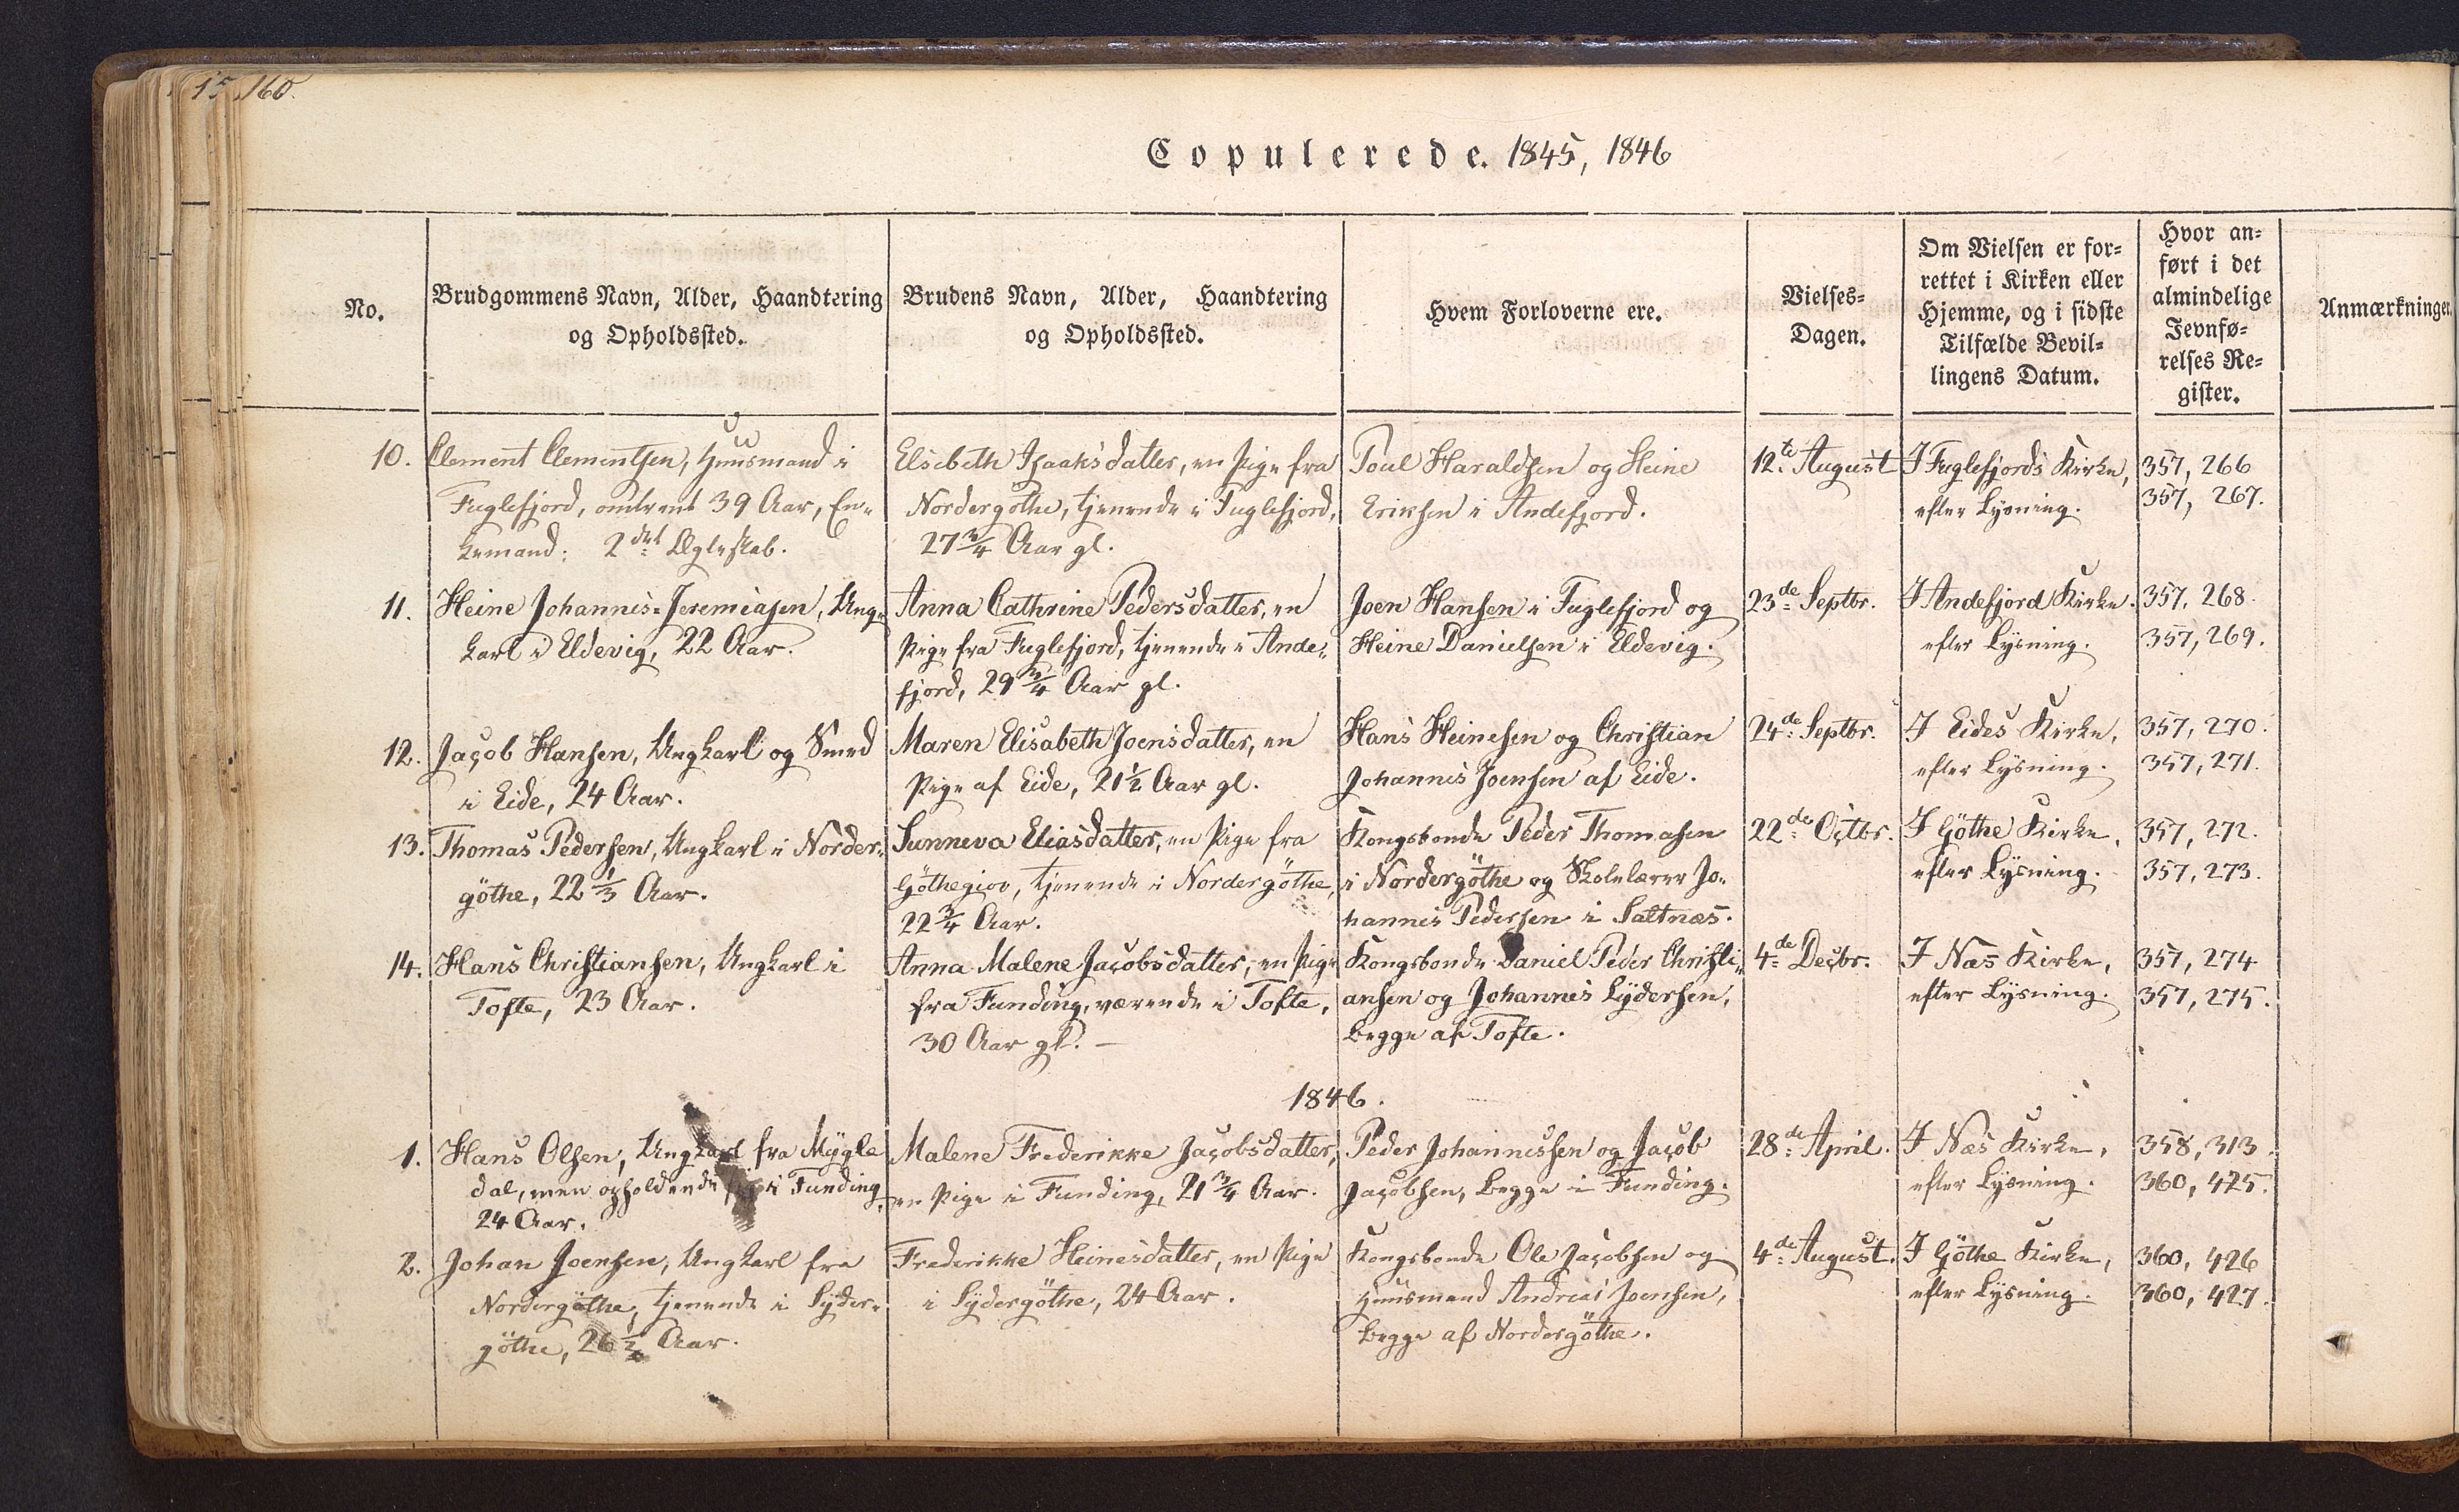 15 160.
Copulerede. 1845, 1846
No.
Brudgommens Navn, Alder, Haandtering
og Opholdssted.
Brudens Navn, Alder, Haandtering
og Opholdssted.
Hvem Forloverne ere.
Vielses-
Dagen.
Om Vielsen er for-
rettet i Kirken eller
Hjemme, og i sidste
Tilfælde Bevil-
lingens Datum.
Hvor an-
ført i det
almindelige
Jevnfø-
relses Re-
gister.
Anmærkninger.
10.
Clement Clementsen, Huusmand i
Fuglefjord, omtrent 39 Aar, En-
kemand: 2det Ægteskab.
Elsebeth Isaaksdatter, en Pige fra
Nordergöthe, tjenende i Fuglefjord,
27 3/4 Aar gl.
Poul Haraldsen og Heine
Eriksen i Andefjord.
12te August
I Fuglefjords Kirke,
efter Lysning.
357, 266
357, 267.
11.
Heine Johannis-Jeremiasen, Ung-
karl i Eldevig, 22 Aar.
Anna Cathrine Pedersdatter, en
Pige fra Fuglefjord, tjenende i Ande-
fjord, 29 3/4 Aar gl.
Joen Hansen i Fuglefjord og
Heine Danielsen i Eldevig.
23de Septbr.
I Andefjord Kirke.
efter Lysning.
357, 268.
357, 269.
12.
Jacob Hansen, Ungkarl og Smed
i Eide, 24 Aar.
Maren Elisabeth Joensdatter, en
Pige af Eide, 21 1/2 Aar gl.
Hans Heinesen og Christian
Johannis Joensen af Eide.
24de Septbr.
I Eides Kirke,
efter Lysning.
357, 270.
357, 271.
13.
Thomas Pedersen, Ungkarl i Norder-
göthe, 22 1/3 Aar.
Sunneva Eliasdatter, en Pige fra
Göthegiov, tjenende i Nordergöthe,
22 3/4 Aar.
Kongsbonde Peder Thomasen
i Nordergöthe og Skolelærer Jo-
hannes Pedersen i Saltnæs.
22de Octbr.
I Göthe Kirke,
efter Lysning.
357, 272.
357, 273.
14.
Hans Christiansen, Ungkarl i
Tofte, 23 Aar.
Anna Malene Jacobsdatter, en Pige
fra Funding, værende i Tofte,
30 Aar gl. —
Kongsbonde Daniel Peder Christi-
ansen og Johannes Lydersen,
begge af Tofte.
4de Decbr.
I Næs Kirke,
efter Lysning.
357, 274
357, 275.
1846.
1.
Hans Olsen, Ungkarl fra Mygle
dal, men opholdende sig i Funding,
24 Aar.
Malene Frederikke Jacobsdatter,
en Pige i Funding, 21 3/4 Aar.
Peder Johannessen og Jacob
Jacobsen, begge i Funding.
28de April.
I Næs Kirke,
efter Lysning.
358, 313.
360, 425.
2.
Johan Joensen, Ungkarl fra
Nordergöthe, tjenende i Syder-
göthe, 26 1/2 Aar.
Frederikke Heinesdatter, en Pige
i Sydergöthe, 24 Aar.
Kongsbonde Ole Jacobsen og
Huusmand Andreas Joensen,
begge af Nordergöthe.
4de August.
I Göthe Kirke,
efter Lysning.
360, 426
360, 427.